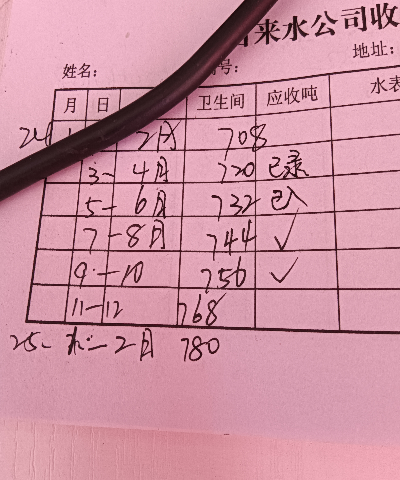 来水公司收
地址：
姓名：
号：
月 日 卫生间 应收吨 水表
24 2月 708
3-4月 720 已录
5-6月 732 已入
7-8月 744 ✓
9-10 756 ✓
11-12 768
25- 2月 780